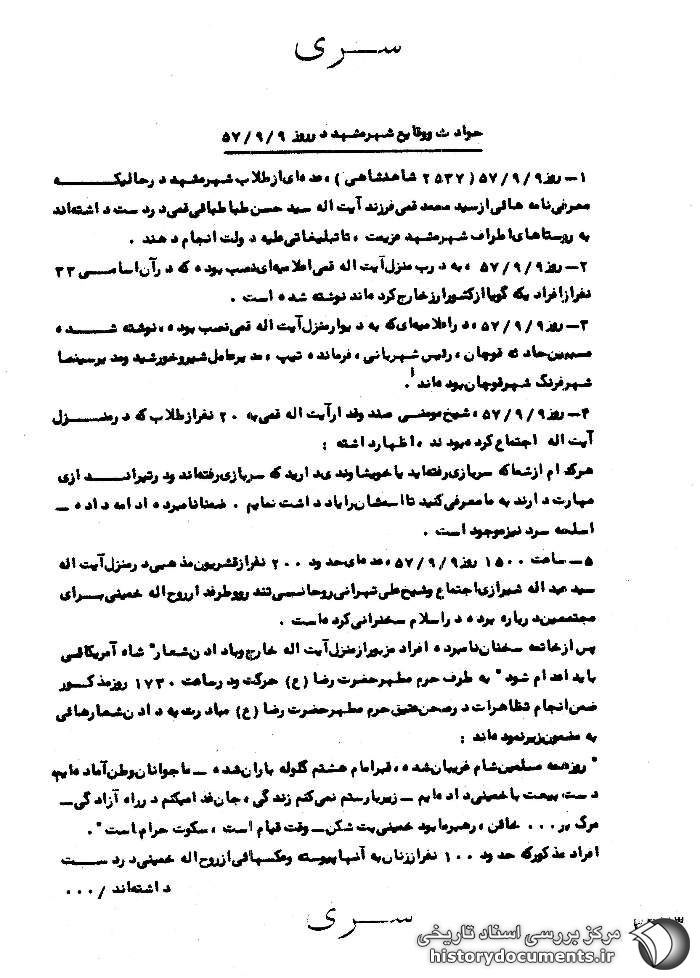 سری
حوادث ووقایع شهرمشهد درروز ۵۷/۹/۹
۱- روز ۵۷/۹/۹ (۲۵۳۷ شاهنشاهی)، عده‌ای از طلاب شهرمشهد درحالیکه
معرفی نامه هائی از سید محمد قمی فرزند آیت اله سید حسن طباطبائی قمی دردست داشته‌اند
به روستاهای اطراف شهرمشهد عزیمت، تا تبلیغاتی علیه دولت انجام دهند.
۲- روز ۵۷/۹/۹، به درب منزل آیت اله قمی اعلامیه‌ای نصب بوده که درآن اسامی ۳۳
نفرازافراد یکه گویا ازکشورارز خارج کرده‌اند نوشته شده است.
۳- روز ۵۷/۹/۹، دراعلامیه‌ای که به دیوارمنزل آیت اله قمی نصب بوده، نوشته شده
مسببین حادثه قوچان، رئیس شهربانی، فرمانده تیپ، مدیرعامل شیروخورشید ومدیرسینما
شهرفرنگ شهرقوچان بوده‌اند.
۴- روز ۵۷/۹/۹، شیخ مومنی صندوقدارآیت اله قمی به ۲۰ نفرازطلاب که درمنزل
آیت اله اجتماع کرده بودند، اظهارداشته:
هرکدام ازشما که سربازی رفته‌اید یا خویشاوندی دارید که سربازی رفته‌اند ودرتیراندازی
مهارت دارند به ما معرفی کنید تا اسمشان را یادداشت نمایم. ضمنا نامبرده ادامه داده -
اسلحه سرد نیزموجود است.
۵- ساعت ۱۵۰۰ روز ۵۷/۹/۹، عده‌ای حدود ۲۰۰ نفرازقشریون مذهبی درمنزل آیت اله
سید عبداله شیرازی اجتماع وشیخ علی تهرانی روحانی تندرووطرفدارروح اله خمینی برای
مجتمعین درباره برده دراسلام سخنرانی کرده است.
پس ازخاتمه سخنان نامبرده افراد مزبورازمنزل آیت اله خارج وبا دادن شعار" شاه آمریکائی
باید اعدام شود" به طرف حرم مطهرحضرت رضا (ع) حرکت ودرساعت ۱۷۳۰ روزمذکور
ضمن انجام تظاهرات درصحن عتیق حرم مطهرحضرت رضا (ع) مبادرت به دادن شعارهائی
به مضمون زیرنموده‌اند:
" روزهمه مسلمین شام غریبان شده، قبرامام هشتم گلوله باران شده - ما جوانان وطن آماده‌ایم
دست بیعت با خمینی داده‌ایم - زیربارستم نمی کنم زندگی، جان فدا میکنم درراه آزادگی -
مرگ بر... خائن، رهبرما بود خمینی بت شکن - وقت قیام است، سکوت حرام است".
افراد مذکورکه حدود ۱۰۰ نفراززنان به آنها پیوسته وعکسهائی ازروح اله خمینی دردست
داشته‌اند /...
سری
مرکز بررسی اسناد تاریخی
historydocuments.ir